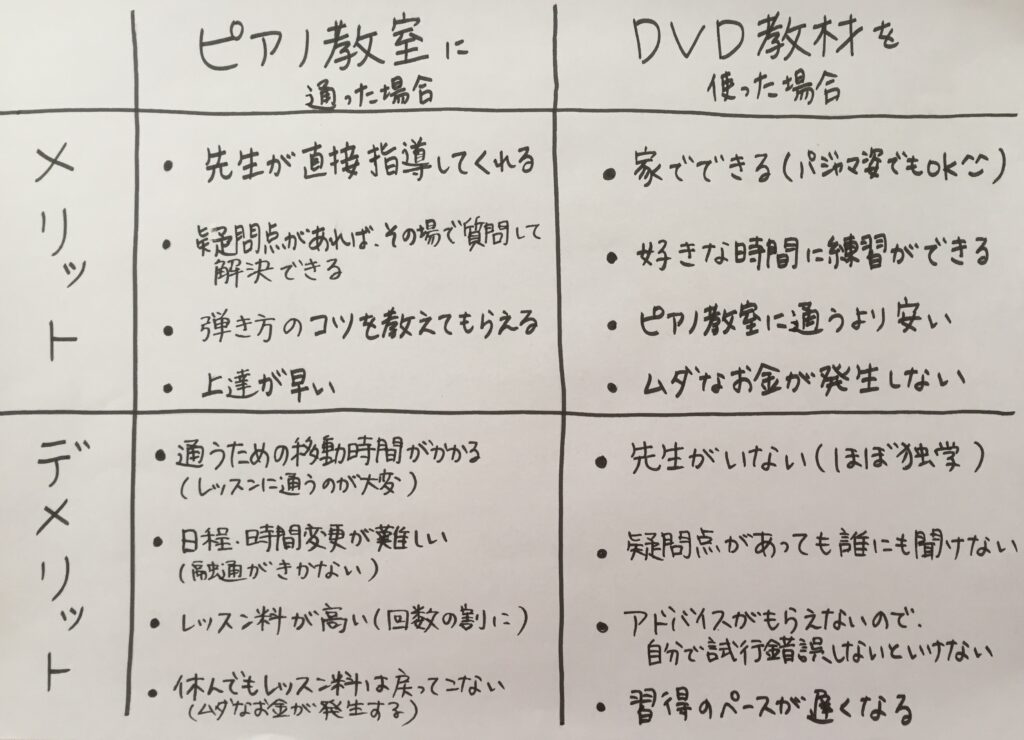 ピアノ教室に
通った場合
DVD教材を
使った場合
メリット
・先生が直接指導してくれる
・疑問点があれば、その場で質問して
解決できる
・弾き方のコツを教えてもらえる
・上達が早い
・家でできる(パジャマ姿でもOK^^)
・好きな時間に練習ができる
・ピアノ教室に通うより安い
・ムダなお金が発生しない
デメリット
・通うための移動時間がかかる
(レッスンに通うのが大変)
・日程・時間変更が難しい
(融通がきかない)
・レッスン料が高い(回数の割に)
・休んでもレッスン料は戻ってこない
(ムダなお金が発生する)
・先生がいない(ほぼ独学)
・疑問点があっても誰にも聞けない
・アドバイスがもらえないので、
自分で試行錯誤しないといけない
・習得のペースが遅くなる